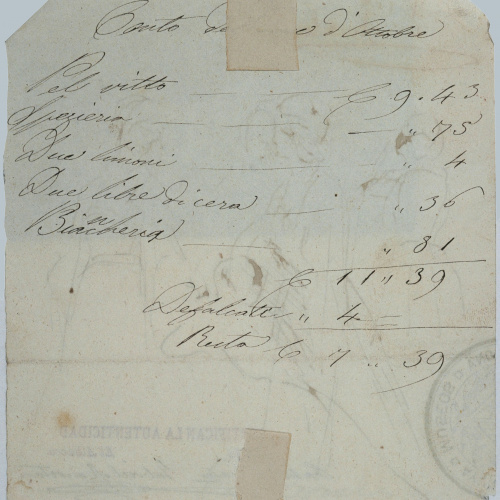 Conto d'Ottobre
Pel vitto ₤ 9. 43
Spezieria " 75
Due limoni " 4
Due libre di cera " 36
Biancheria " 81
₤ 11 " 39
Defalcatti " 4 =
Resta ₤ 7 " 39
CERTIFICAN LA AUTENTICIDAD